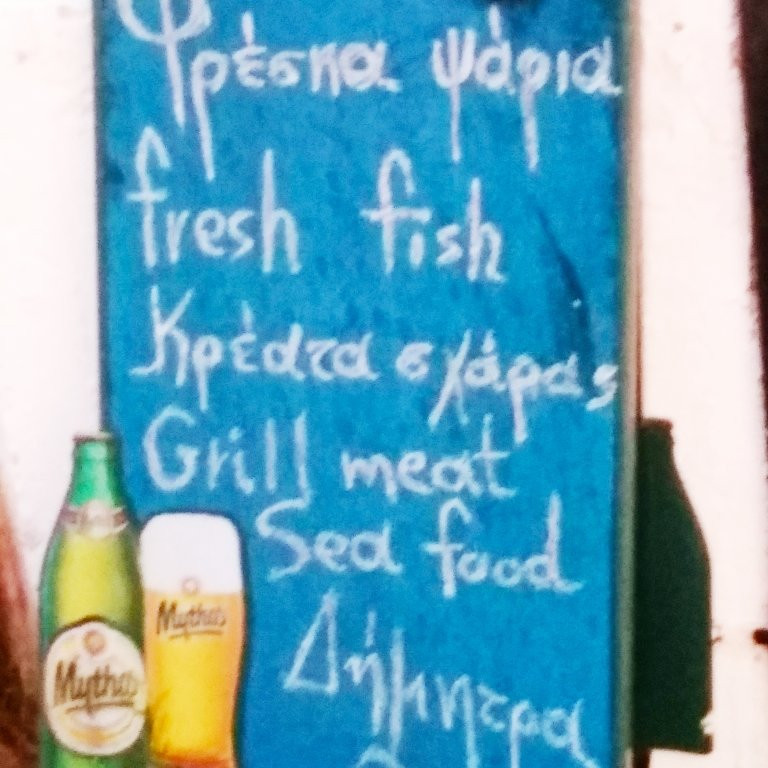 Φρέσκα ψάρια
fresh fish
Κρέατα σχάρας
Grill meat
Sea food
Δήμητρα
Mythos
Mythos